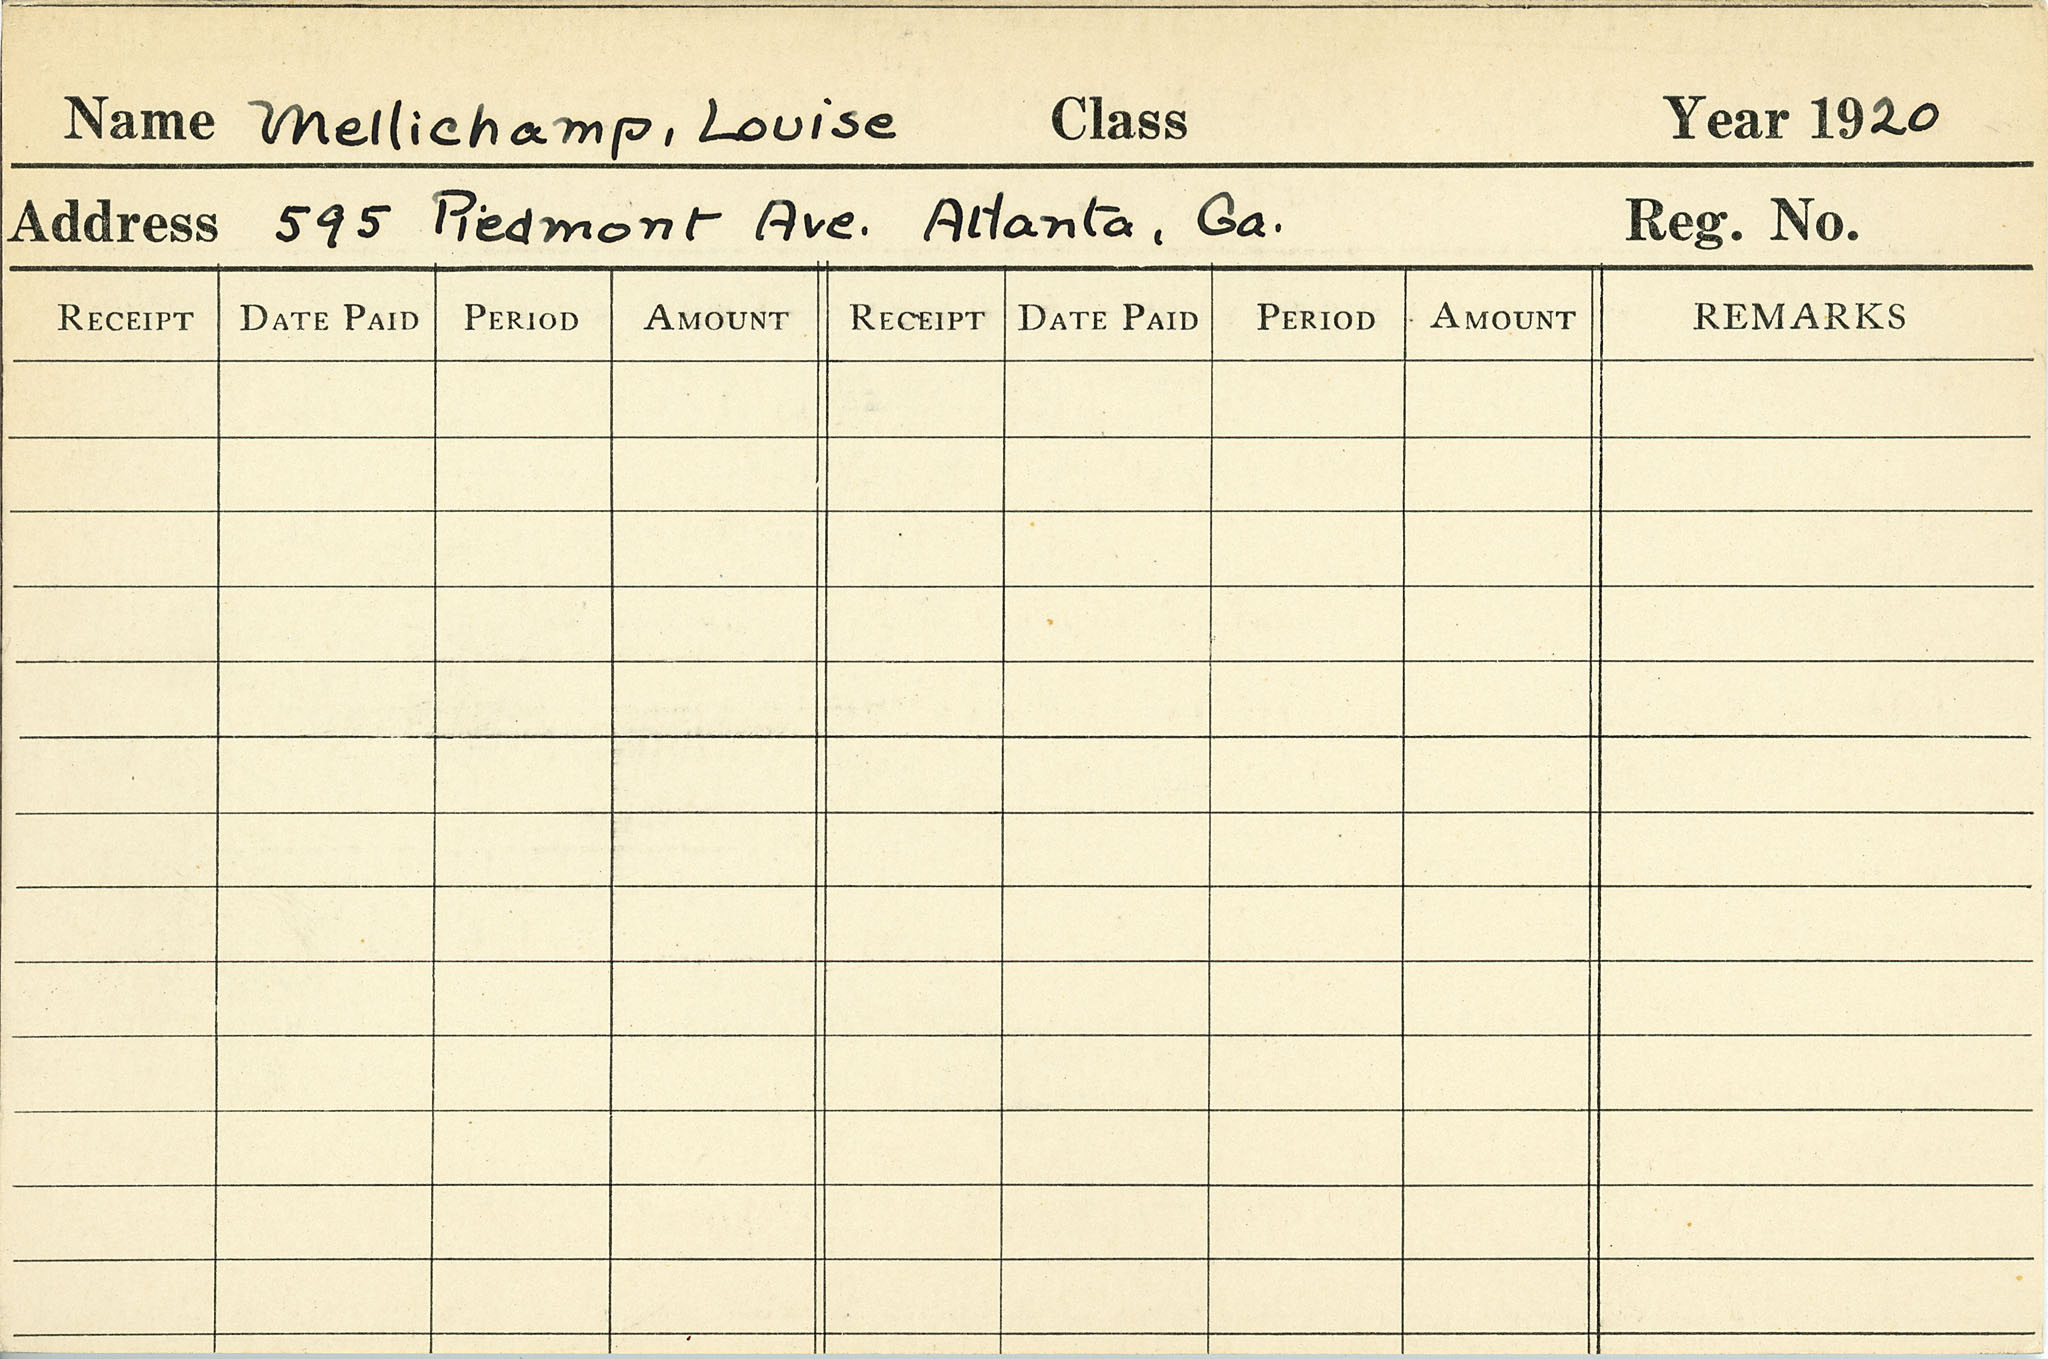 Name Mellichamp, Louise Class Year 1920
Address 595 Piedmont Ave. Atlanta, Ga. Reg. No.
RECEIPT DATE PAID PERIOD AMOUNT RECEIPT DATE PAID PERIOD AMOUNT REMARKS